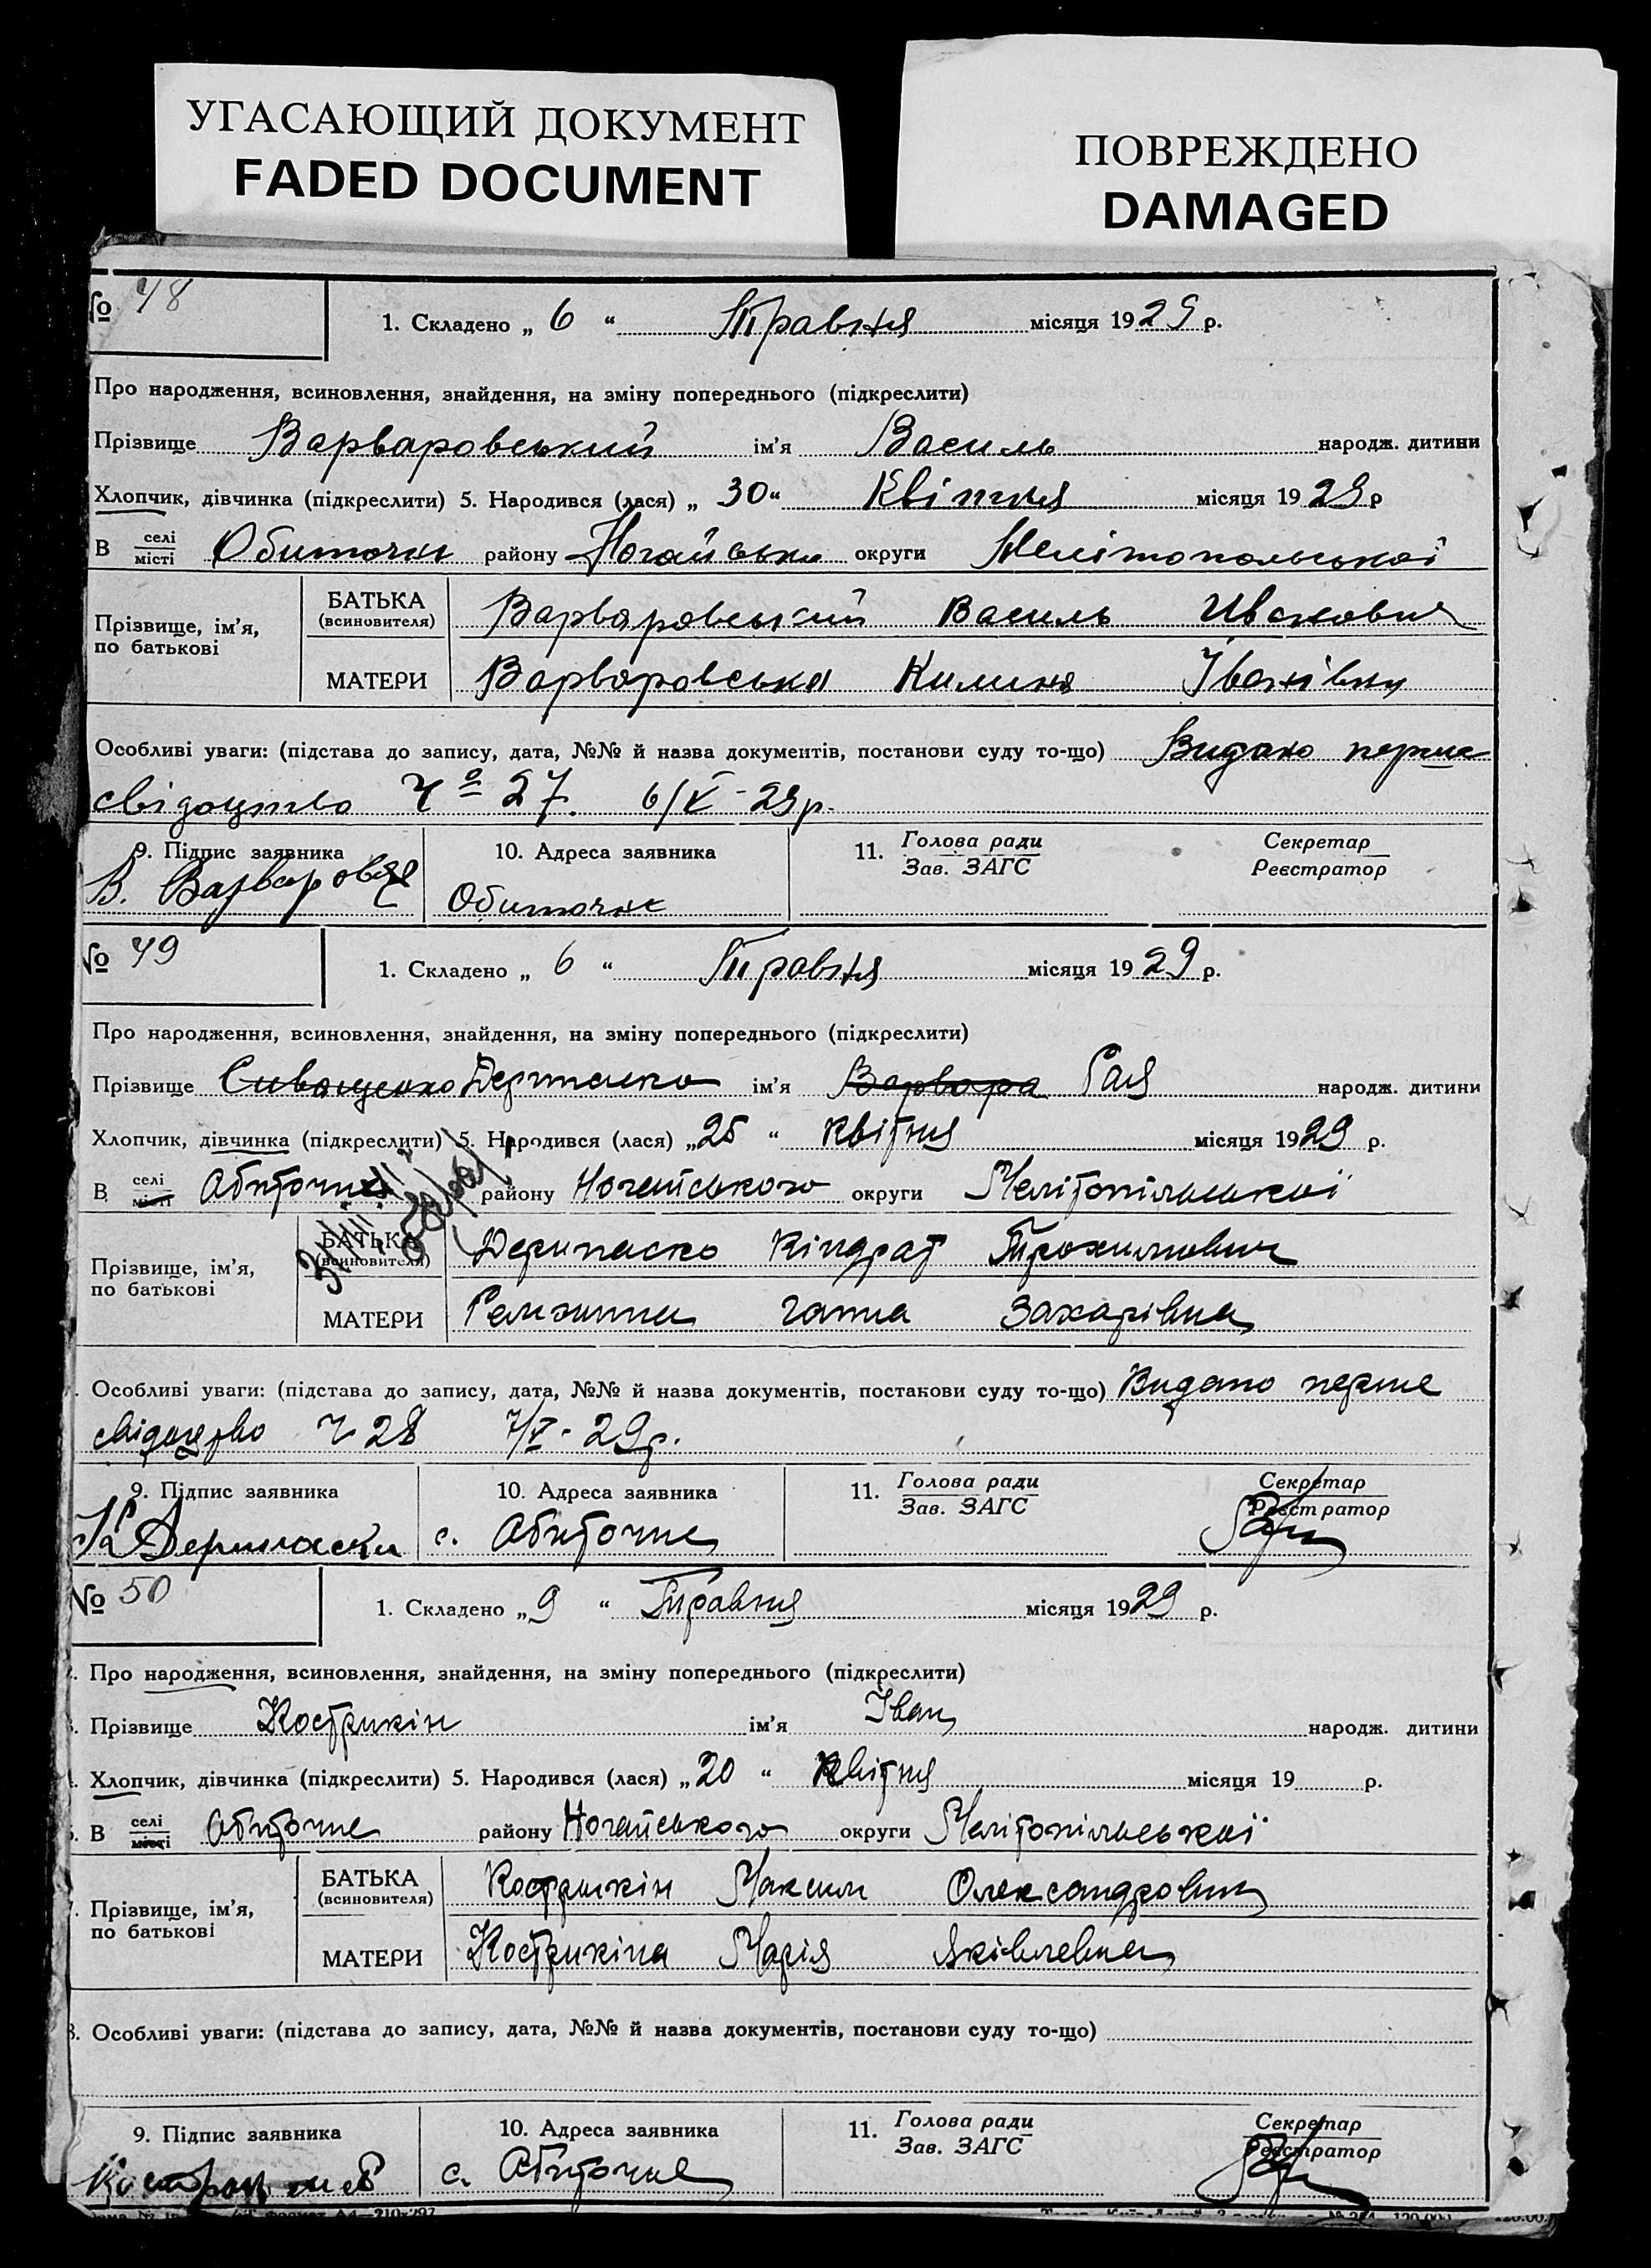 УГАСАЮЩИЙ ДОКУМЕНТ
FADED DOCUMENT
ПОВРЕЖДЕНО
DAMAGED
№ 48
1. Складено „ 6 “ Травня місяця 1929 р.
Про народження, всиновлення, знайдення, на зміну попереднього (підкреслити)
Прізвище Варваровський ім'я Василь народж. дитини
Хлопчик, дівчинка (підкреслити) 5. Народився (лася) „ 30 “ Квітня місяця 1929 р
В селі місті Обиточне району Ногайськ округи Мелітопольської
Прізвище, ім'я, по батькові
БАТЬКА (всиновителя) Варваровський Василь Иванович
МАТЕРИ Варваровська Килина Іванівна
Особливі уваги: (підстава до запису, дата, №№ й назва документів, постанови суду то-що) Видано перше
свідоцтво Ч о 27. 6/V - 29 р.
9. Підпис заявника 10. Адреса заявника 11. Голова ради Зав. ЗАГС Секретар Реєстратор
В. Обиточне
№ 49
1. Складено „ 6 “ Травня місяця 1929 р.
Про народження, всиновлення, знайдення, на зміну попереднього (підкреслити)
Прізвище Сиващенко Дерипаско ім'я Варвара Рая народж. дитини
Хлопчик, дівчинка (підкреслити) 5. Народився (лася) „ 25 “ квітня місяця 1929 р.
В селі місті Обиточне району Ногайського округи Мелітопільської
Прізвище, ім'я, по батькові
БАТЬКА (всиновителя) Дерипаско Кіндрат Трохимович
МАТЕРИ Ганна Захарівна
Особливі уваги: (підстава до запису, дата, №№ й назва документів, постанови суду то-що) Видано перше
свідоцтво Ч 28 7/V - 29 р.
9. Підпис заявника 10. Адреса заявника 11. Голова ради Зав. ЗАГС Секретар Реєстратор
с. Обиточне
№ 50
1. Складено „ 9 “ Травня місяця 1929 р.
Про народження, всиновлення, знайдення, на зміну попереднього (підкреслити)
Прізвище Кострикін ім'я Іван народж. дитини
Хлопчик, дівчинка (підкреслити) 5. Народився (лася) „ 20 “ квітня місяця 19 р.
В селі місті Обиточне району Ногайського округи Мелітопільської
Прізвище, ім'я, по батькові
БАТЬКА (всиновителя) Кострикін Максим Олександрович
МАТЕРИ Кострикіна Марія Яківлевна
8. Особливі уваги: (підстава до запису, дата, №№ й назва документів, постанови суду то-що)
9. Підпис заявника 10. Адреса заявника 11. Голова ради Зав. ЗАГС Секретар Реєстратор
с. Обиточне